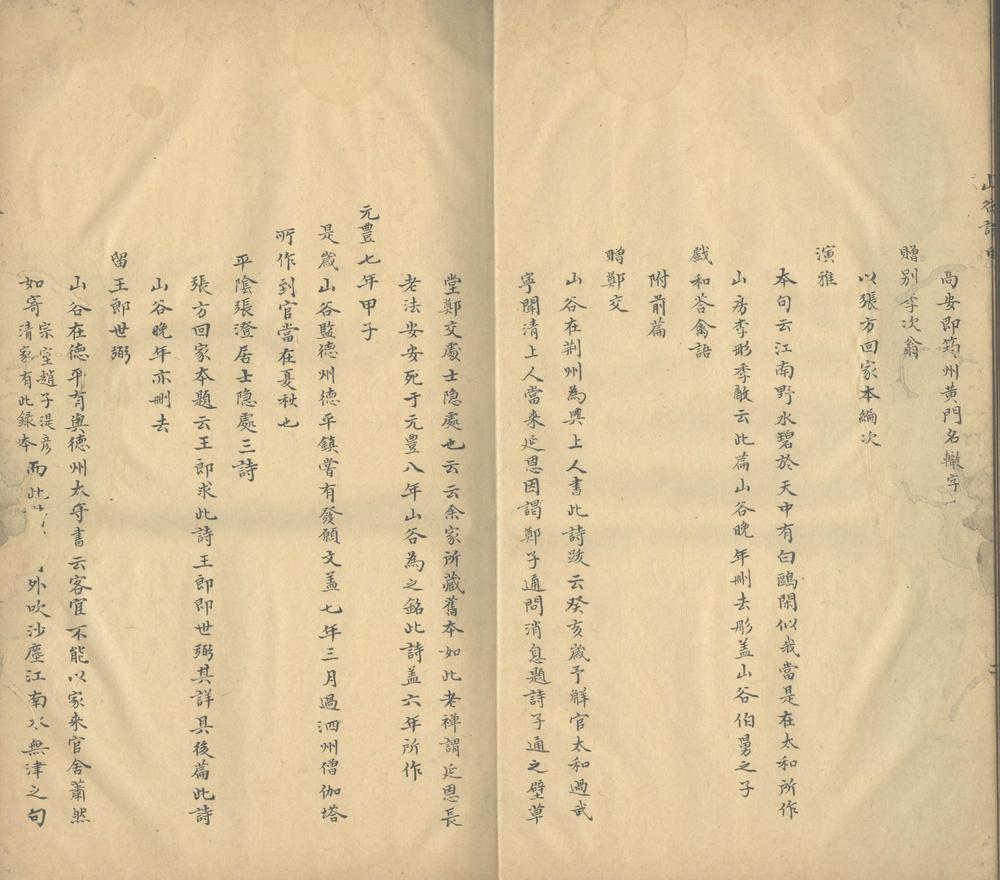 山谷詩
高安即筠州黃門名轍字
贈别李次翁
以張方回家本編次
演雅
本句云江南野水碧於天中有白鷗閑似我當是在太和所作
山房李彤季敵云此篇山谷晚年刪去彤盖山谷伯舅之子
戲和荅禽語
附前篇
贈鄭交
山谷在荆州為與上人書此詩跋云癸亥歲予解官太和過武
寧聞清上人當来延恩因謁鄭子通問消息題詩子通之壁草
堂鄭交處士隐處也云云余家所藏舊本如此老禅謂延恩長
老法安安死于元豐八年山谷為之銘此詩盖六年所作
元豐七年甲子
是歲山谷監德州德平鎮嘗有發願文盖七年三月過泗州僧伽塔
所作到官當在夏秋也
平陰張澄居士隐處三詩
張方回家本題云王郎求此詩王郎即世弼其詳具後篇此詩
山谷晚年亦刪去
留王郎世弼
山谷在德平有與德州太守書云客宦不能以家来官舍蕭然
如寄宗室趙子湜彦清家有此録本而此 外吹沙塵江南水無津之句